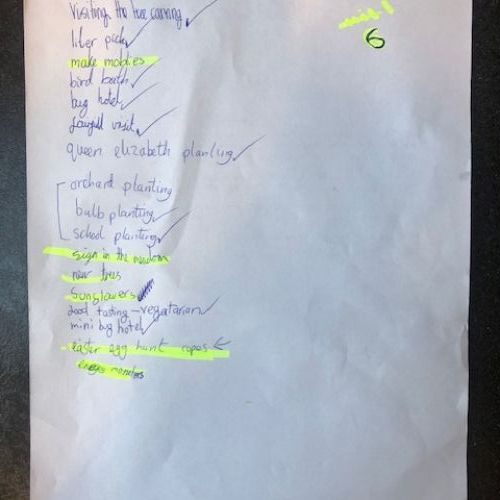 visiting the tree carving
liter pick
make modies
bird bath
bug hotel
visit
queen elizabeth planting
orchard planting
bulb planting
school planting
sign in the
new trees
Sunflowers
food tasting - vegatarian
mini bug hotel
easter egg hunt ropes
6